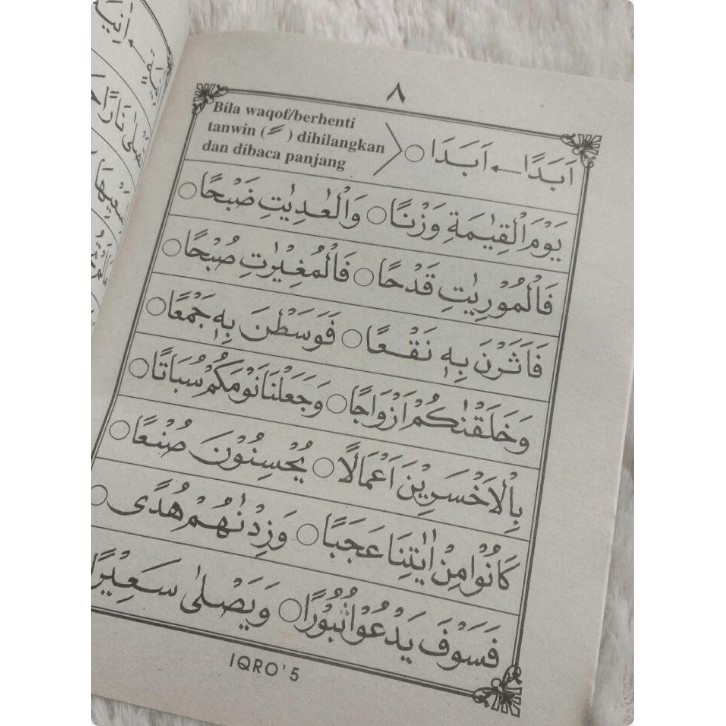 ٨
Bila waqof/berhenti
tanwin (ـً) dihilangkan
dan dibaca panjang
اَبَدًا ← اَبَدَا ○
يَوْمَ الْقِيٰمَةِ وَزْنًا ○ وَالْعٰدِيٰتِ ضَبْحًا ○
فَالْمُوْرِيٰتِ قَدْحًا ○ فَالْمُغِيْرٰتِ صُبْحًا ○
فَاَثَرْنَ بِهٖ نَقْعًا ○ فَوَسَطْنَ بِهٖ جَمْعًا ○
وَخَلَقْنٰكُمْ اَزْوَاجًا ○ وَجَعَلْنَا نَوْمَكُمْ سُبَاتًا ○
بِالْاَخْسَرِيْنَ اَعْمَالًا ○ يُحْسِنُوْنَ صُنْعًا ○
كَانُوْا مِنْ اٰيٰتِنَا عَجَبًا ○ وَزِدْنٰهُمْ هُدًى ○
فَسَوْفَ يَدْعُوْا ثُبُوْرًا ○ وَيَصْلٰى سَعِيْرًا
IQRO'5